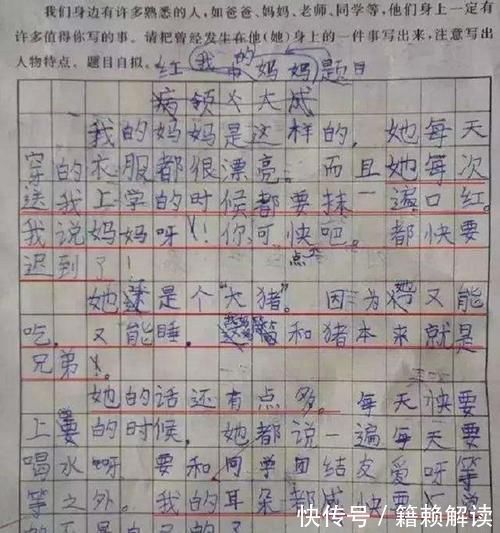 我们身边有许多熟悉的人,如爸爸、妈妈、老师、同学等,他们身上一定有
许多值得你写的事。请把曾经发生在他(她)身上的一件事写出来,注意写出
人物特点、题目自拟。
红 我的妈妈 题目
病领 大咸
我的妈妈是这样的,她每天
穿的衣服都很漂亮。而且她每次
送我上学的时候都要抹一遍口红。
我说妈妈呀!你可快吧。都快要
点
迟到了!
她还是个“大猪”。因为她又能
吃,又能睡。和猪本来就是
兄弟。
她的话还有点多。每天快要
上的时候,她都说一遍每天要
喝水呀要和同学团结友爱呀等
等之外。我的耳朵都成快要
快传号/籍赖解读